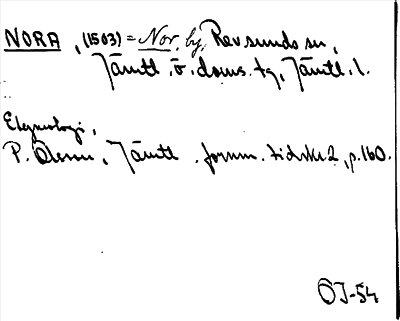 NORA, (1503) = Nor, by, Revsunds sn,
Jämtl. ö. doms. tg, Jämtl. l.
Etymologi,
P. Olsson, Jämtl. fornm. tidskr 2, p. 160.
ÖJ-54